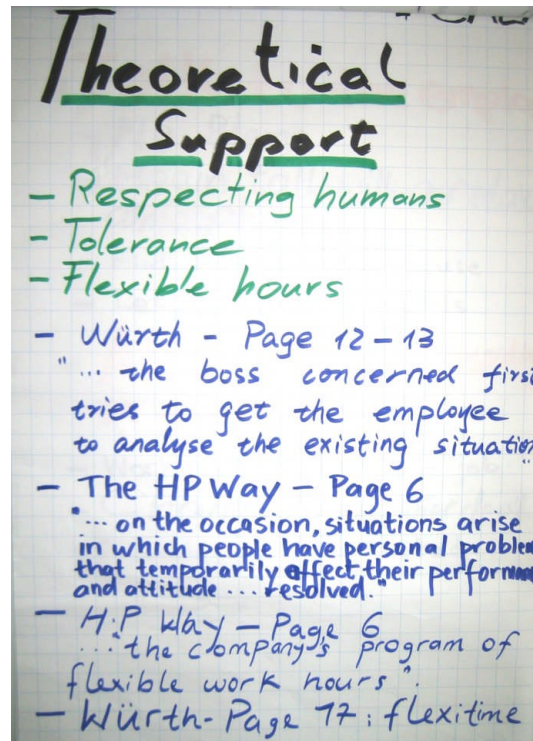 Theoretical
Support
- Respecting humans
- Tolerance
- Flexible hours
- Würth - Page 12-13
"... the boss concerned first
tries to get the employee
to analyse the existing situation"
- The HP Way - Page 6
"... on the occasion, situations arise
in which people have personal problem
that temporarily affect their performan
and attitude .... resolved."
- H.P Way - Page 6
..."the company's program of
flexible work hours".
- Würth- Page 17: flexitime